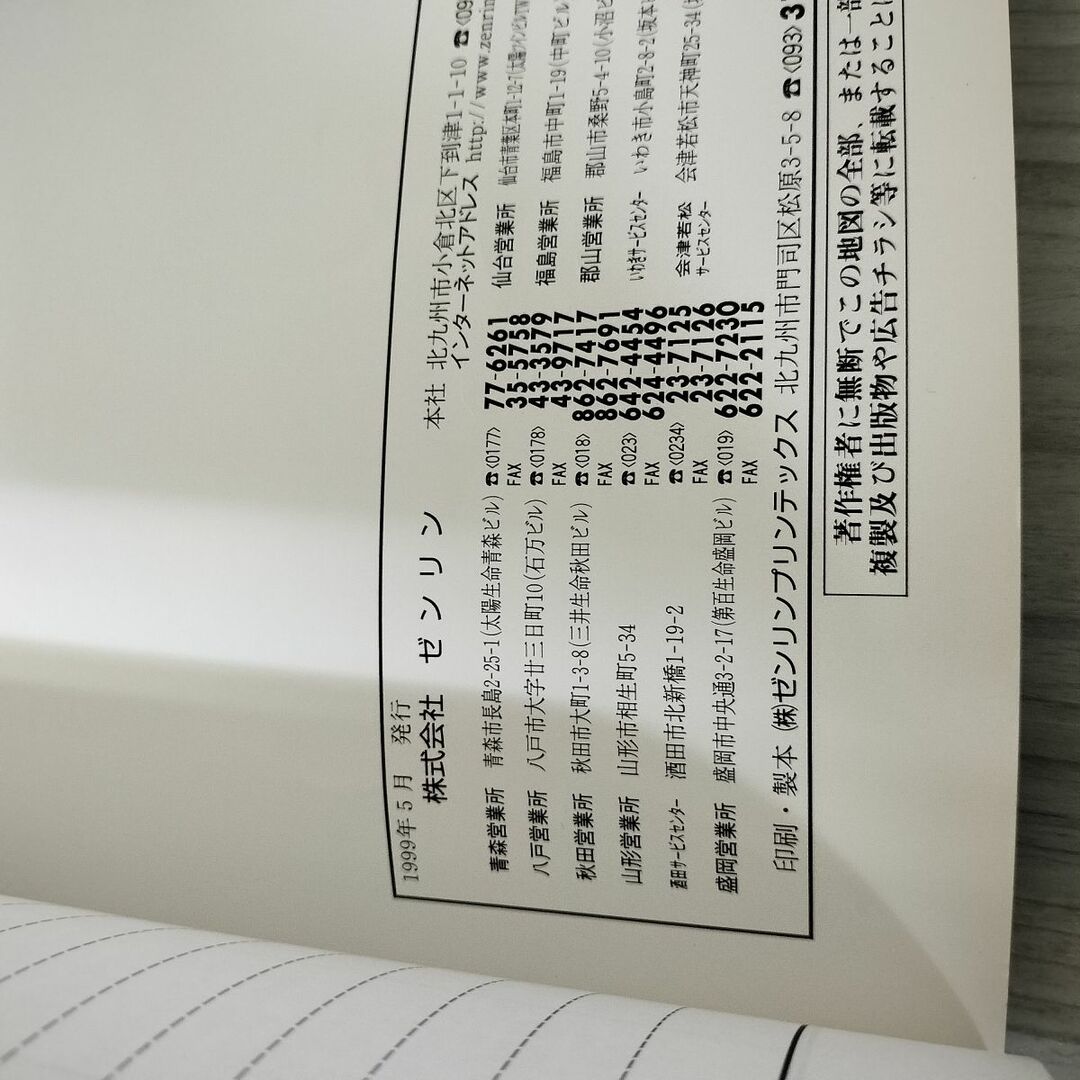 1999年5月 発行
株式会社 ゼンリン 本社 北九州市小倉北区下到津1-1-10 ☎〈09
インターネットアドレス http://www.zenrin
青森営業所 青森市長島2-25-1(太陽生命青森ビル) ☎〈0177〉77-6261 仙台営業所 仙台市青葉区本町1-12-7(太陽ツインビル
FAX 35-5758
八戸営業所 八戸市大字廿三日町10(石万ビル) ☎〈0178〉43-3579 福島営業所 福島市中町1-19(中町ビル
FAX 43-9717
秋田営業所 秋田市大町1-3-8(三井生命秋田ビル) ☎〈018〉862-7417 郡山営業所 郡山市桑野5-4-10(小沼ビ
FAX 862-7691
山形営業所 山形市相生町5-34 ☎〈023〉642-4454 いわきサービスセンター いわき市小島町2-8-2(坂本
FAX 624-4496
酒田サービスセンター 酒田市北新橋1-19-2 ☎〈0234〉23-7125 会津若松 会津若松市天神町25-34(
FAX 23-7126 サービスセンター
盛岡営業所 盛岡市中央通3-2-17(第百生命盛岡ビル) ☎〈019〉622-7230
FAX 622-2115
印刷・製本 (株)ゼンリンプリンテックス 北九州市門司区松原3-5-8 ☎〈093〉3
著作権者に無断でこの地図の全部、または一部
複製及び出版物や広告チラシ等に転載することに